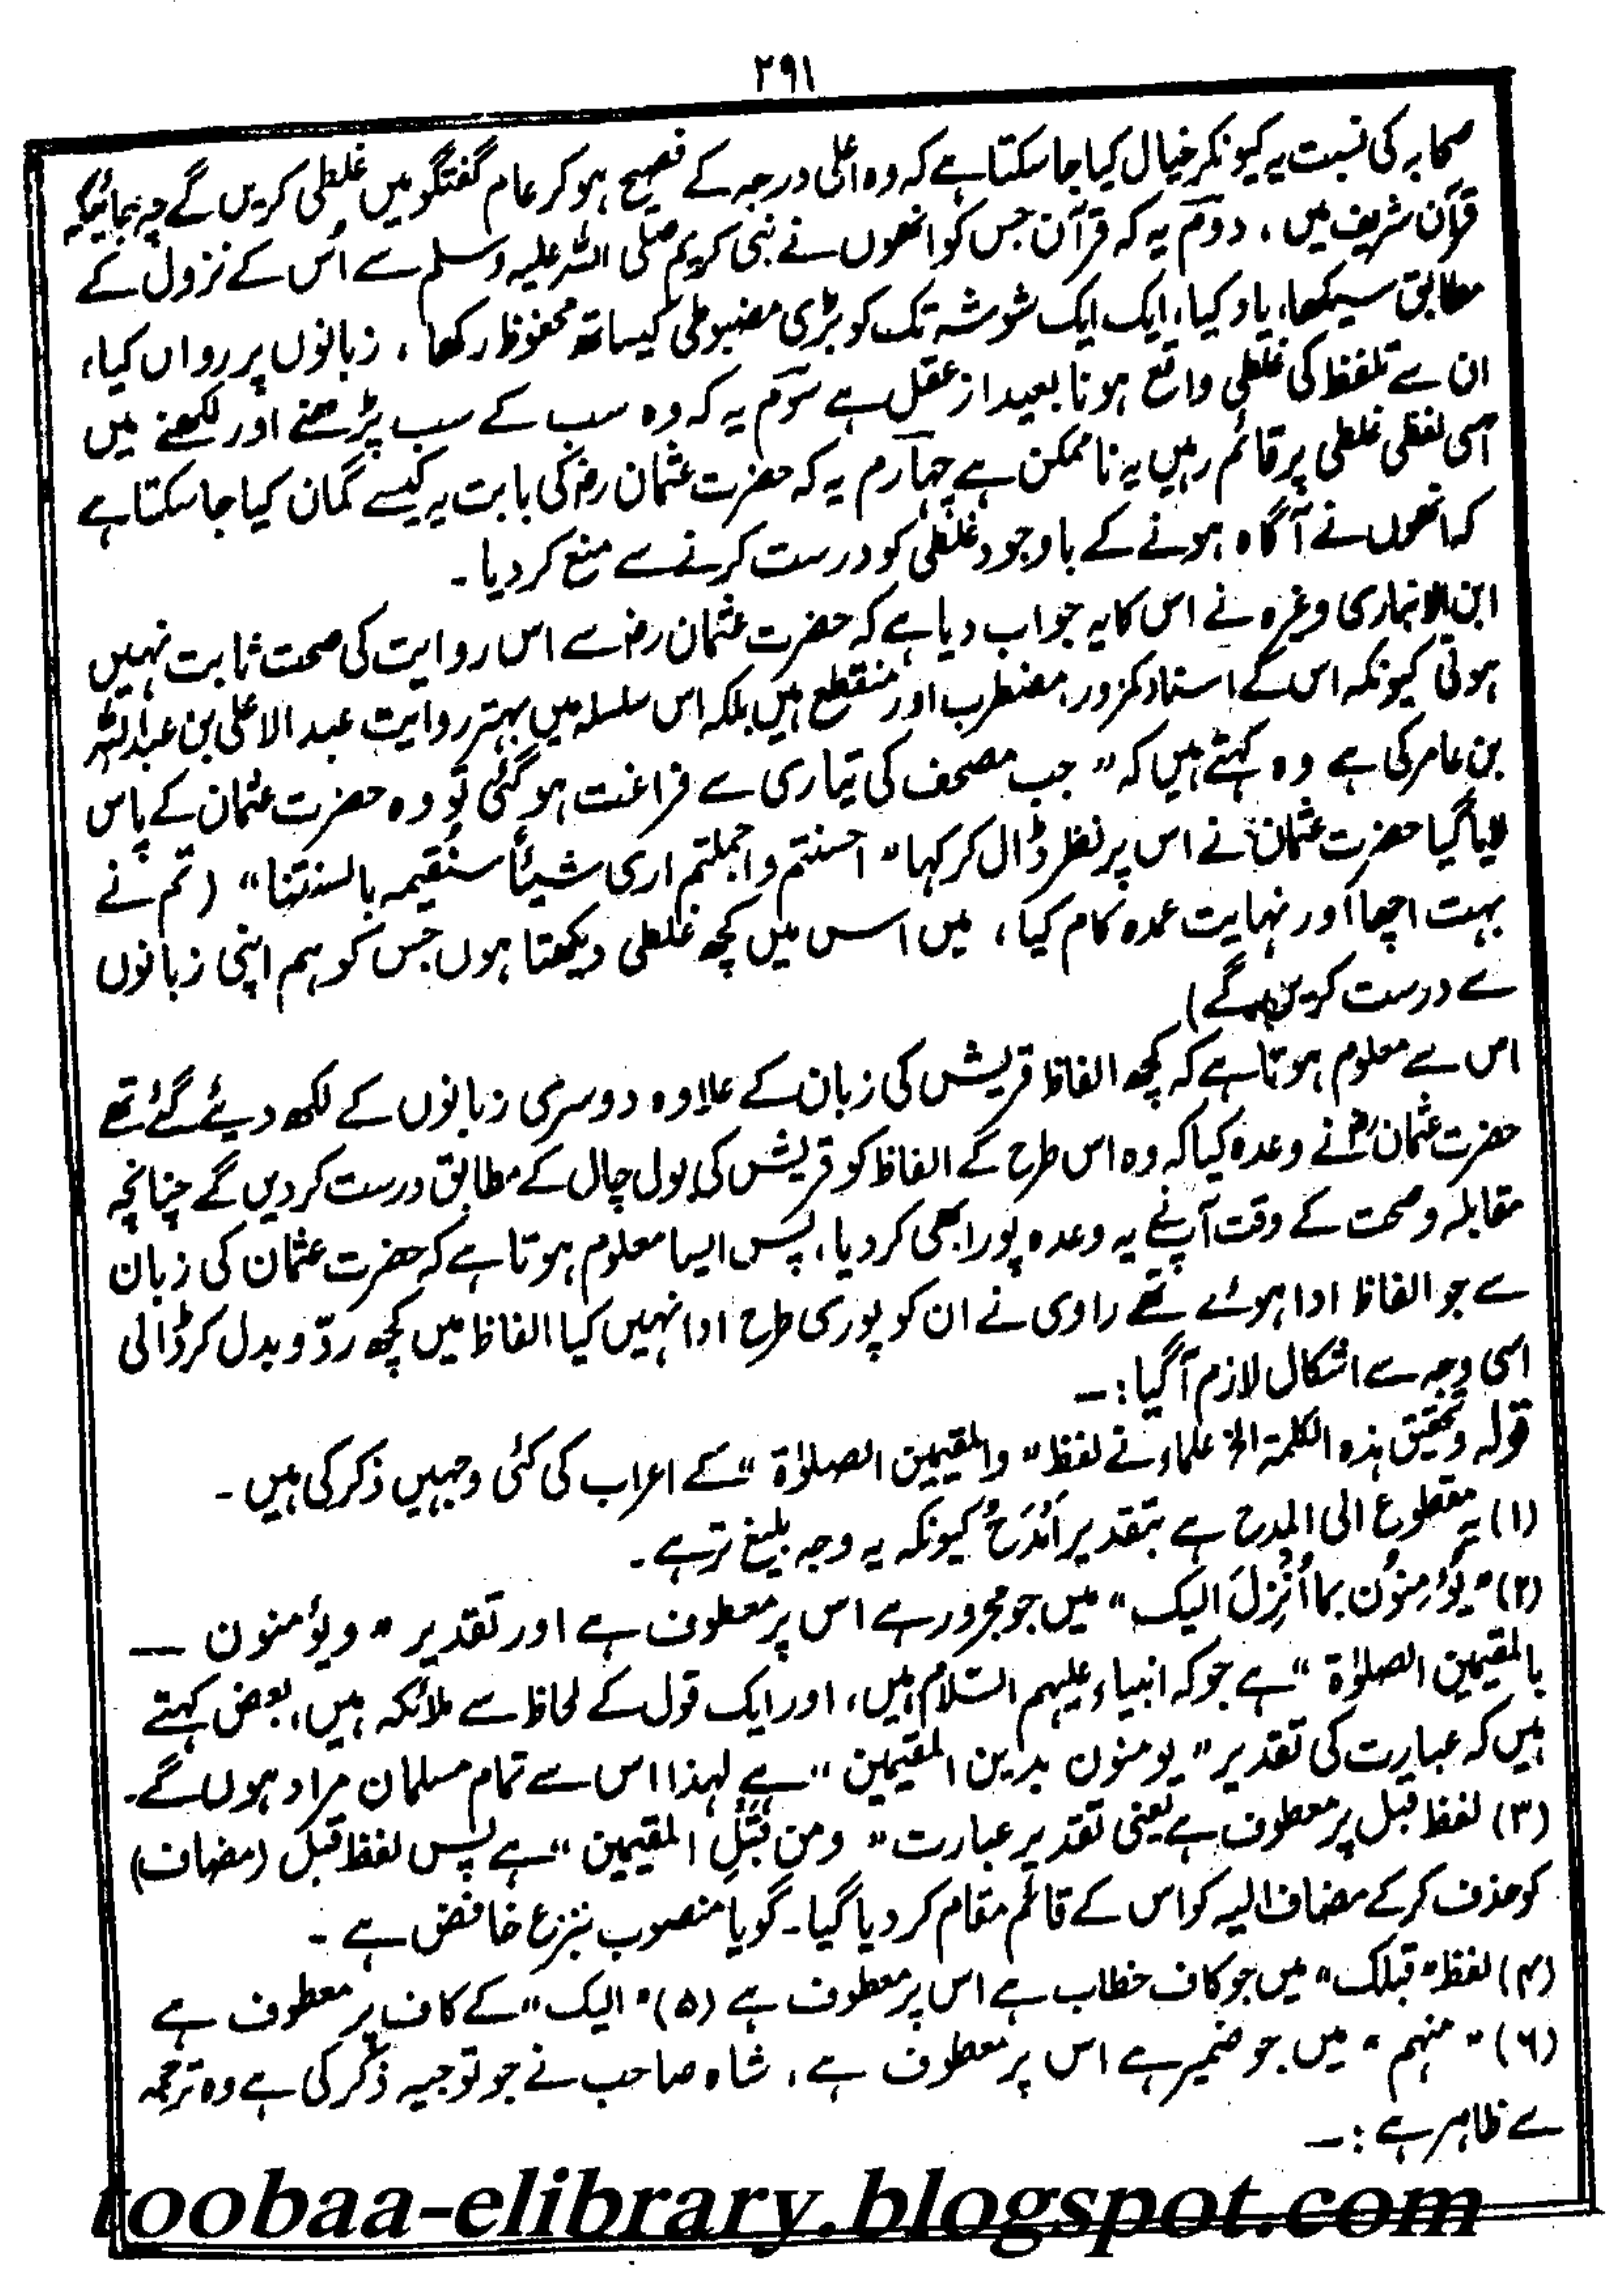 ۲۹۱
صحابہ کی نسبت یہ کیونکر خیال کیا جا سکتا ہے کہ وہ اعلیٰ درجہ کے فصیح ہو کر عام گفتگو میں غلطی کریں گے چہ جائیکہ
قرآن شریف میں، دوم یہ کہ قرآن جس کو انھوں نے نبی کریم صلی اللہ علیہ وسلم سے اُس کے نزول کے
مطابق سیکھا، یاد کیا، ایک ایک شوشہ تک کو بڑی مضبوطی کیساتھ محفوظ رکھا، زبانوں پر رواں کیا،
ان سے تلفظ کی غلطی واقع ہونا بعید از عقل ہے سوم یہ کہ وہ سب کے سب پڑھنے اور لکھنے میں
اسی لفظی غلطی پر قائم رہیں یہ ناممکن ہے چہارم یہ کہ حضرت عثمان رض کی بابت یہ کیسے گمان کیا جا سکتا ہے
کہ انھوں نے آگاہ ہونے کے باوجود غلطی کو درست کرنے سے منع کر دیا۔
ابن الانباری وغیرہ نے اس کا یہ جواب دیا ہے کہ حضرت عثمان رض سے اس روایت کی صحت ثابت نہیں
ہوتی کیونکہ اس کے اسناد کمزور، مضطرب اور منقطع ہیں بلکہ اس سلسلہ میں بہتر روایت عبد الاعلیٰ بن عبداللہ
بن عامر کی ہے وہ کہتے ہیں کہ ” جب مصحف کی تیاری سے فراغت ہو گئی تو وہ حضرت عثمان کے پاس
لایا گیا حضرت عثمان نے اس پر نظر ڈال کر کہا ” احسنتم واجملتم اری شیئاً سنُقیمہ بالسنتنا “ (تم نے
بہت اچھا اور نہایت عمدہ کام کیا، میں اس میں کچھ غلطی دیکھتا ہوں جس کو ہم اپنی زبانوں
سے درست کریں گے)
اس سے معلوم ہوتا ہے کہ کچھ الفاظ قریش کی زبان کے علاوہ دوسری زبانوں کے لکھ دیئے گئے تھے
حضرت عثمان رض نے وعدہ کیا کہ وہ اس طرح کے الفاظ کو قریش کی بول چال کے مطابق درست کر دیں گے چنانچہ
مقابلہ وصحت کے وقت آپ نے یہ وعدہ پورا بھی کر دیا، پس ایسا معلوم ہوتا ہے کہ حضرت عثمان کی زبان
سے جو الفاظ ادا ہوئے تھے راوی نے ان کو پوری طرح ادا نہیں کیا الفاظ میں کچھ ردّ و بدل کر ڈالی
اسی وجہ سے اشکال لازم آ گیا:۔
قولہ وتحقیق ہذہ الکلمۃ الخ علماء نے لفظ ” والمقیمین الصلوٰۃ “ کے اعراب کی کئی وجہیں ذکر کی ہیں۔
(۱) یہ مقطوع الی المدح ہے بتقدیر اَمْدَحُ کیونکہ یہ وجہ بلیغ تر ہے۔
(۲) ” یُؤْمِنُوْن بما اُنْزِلَ الیک “ میں جو مجرور ہے اس پر معطوف ہے اور تقدیر ” ویؤمنون —
بالمقیمین الصلوٰۃ “ ہے جو کہ انبیاء علیہم السلام ہیں، اور ایک قول کے لحاظ سے ملائکہ ہیں، بعض کہتے
ہیں کہ عبارت کی تقدیر ” یومنون بدین المقیمین “ ہے لہذا اس سے تمام مسلمان مراد ہوں گے۔
(۳) لفظ قبل پر معطوف ہے یعنی تقدیر عبارت ” ومن قَبْلِ المقیمین “ ہے پس لفظ قبل (مضاف)
کو حذف کر کے مضاف الیہ کو اس کے قائم مقام کر دیا گیا۔ گویا منصوب بنزع خافض ہے۔
(۴) لفظ ” قبلک “ میں جو کاف خطاب ہے اس پر معطوف ہے (۵) ” الیک “ کے کاف پر معطوف ہے
(۶) ” منہم “ میں جو ضمیر ہے اس پر معطوف ہے، شاہ صاحب نے جو توجیہ ذکر کی ہے وہ ترجمہ
سے ظاہر ہے:۔
toobaa-elibrary.blogspot.com